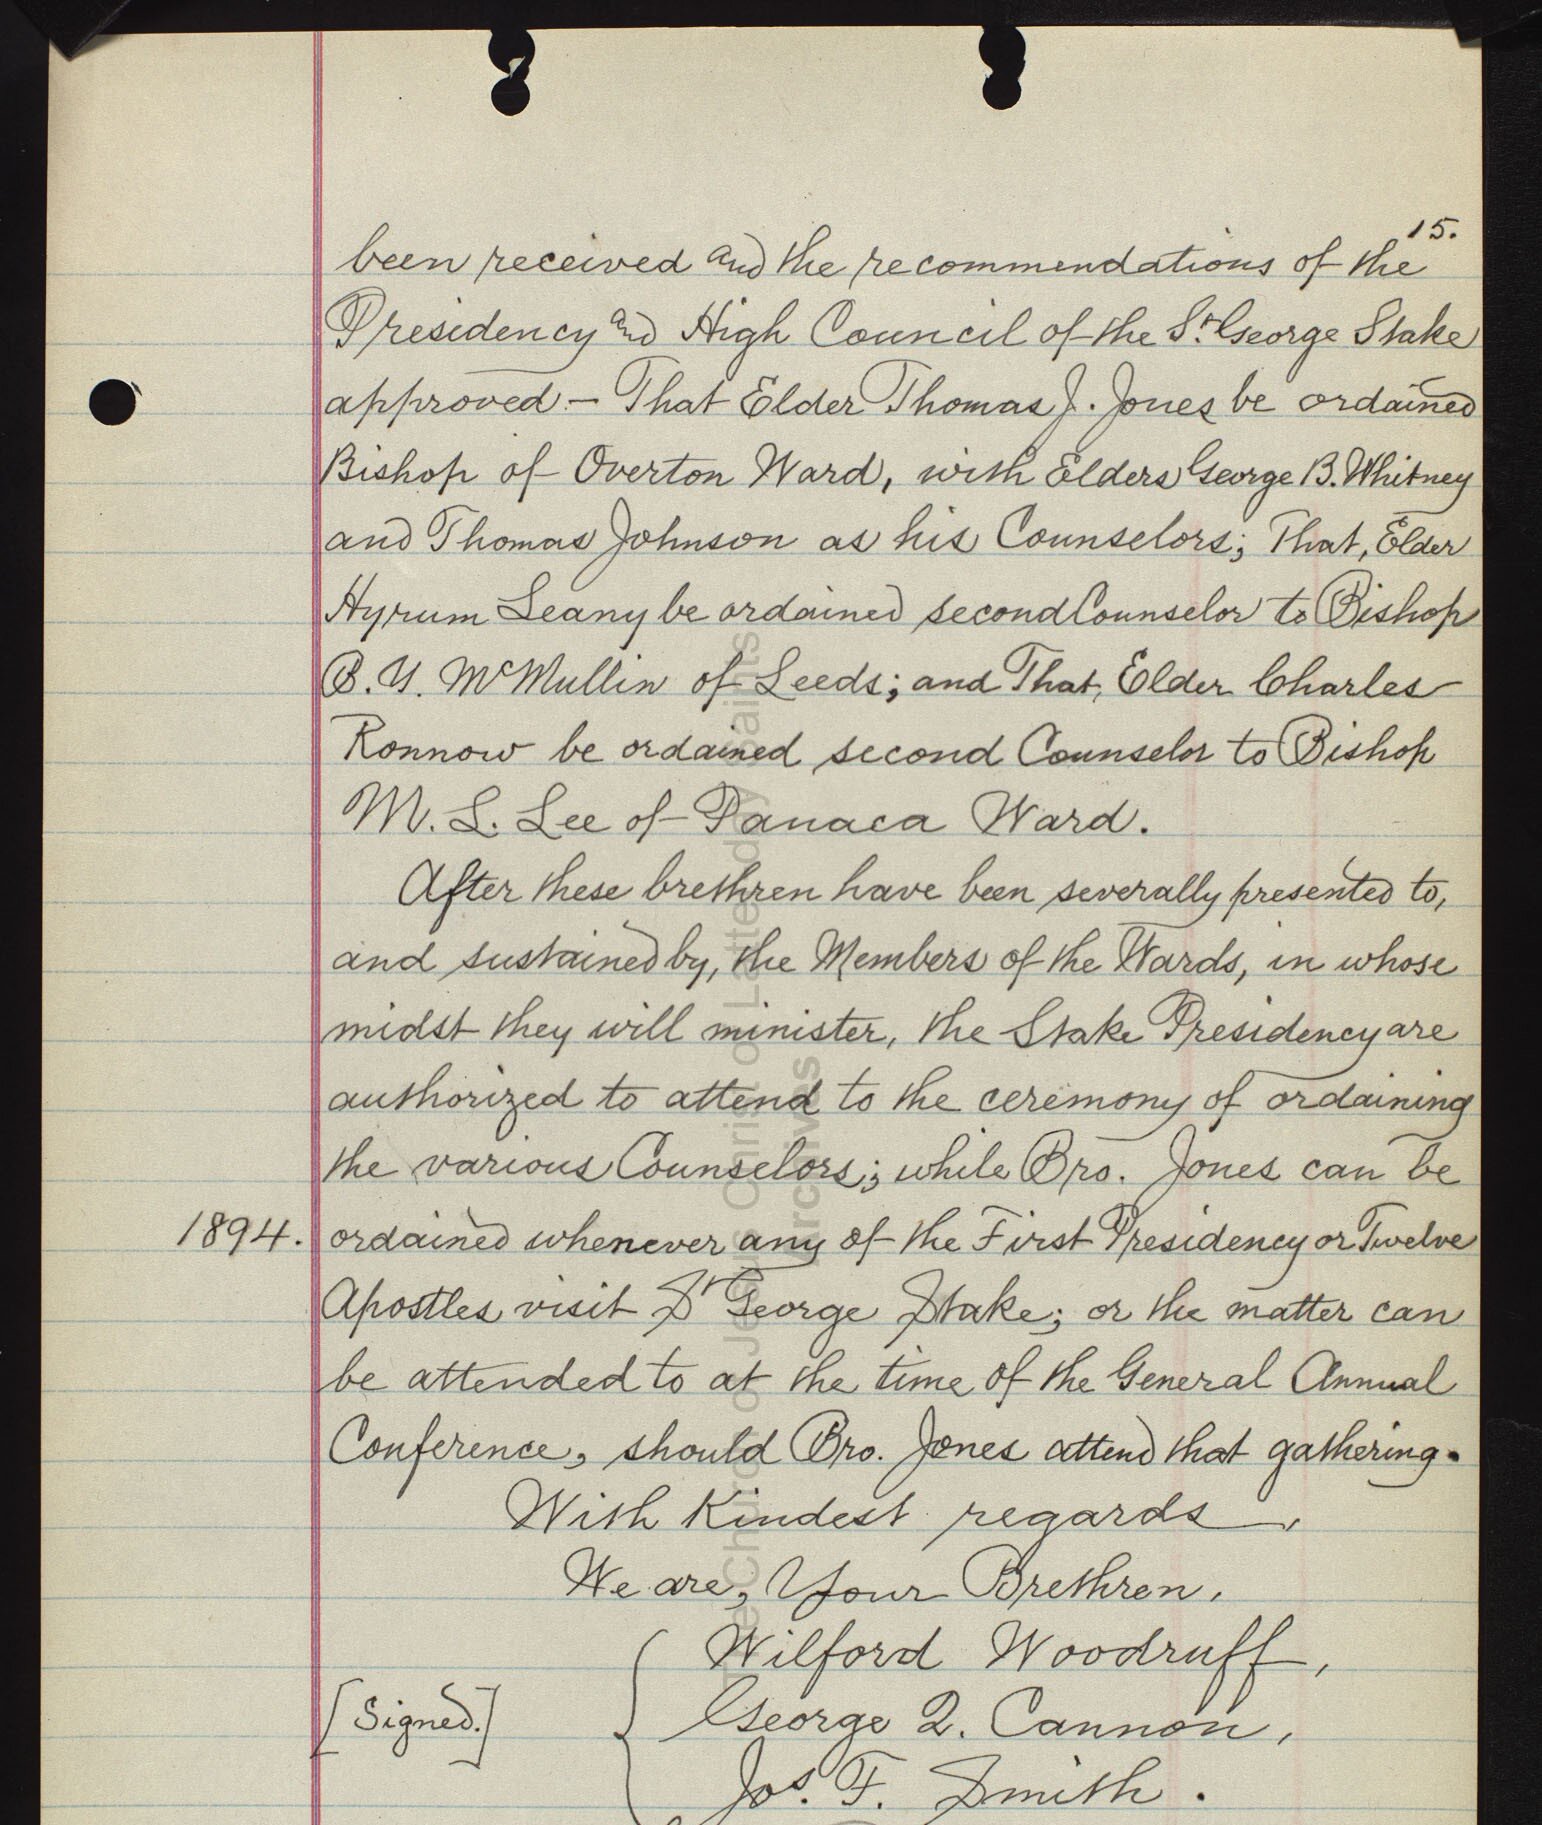 15.
been received and the recommendations of the
Presidency and High Council of the St. George Stake
approved – That Elder Thomas J. Jones be ordained
Bishop of Overton Ward, with Elders George B. Whitney
and Thomas Johnson as his Counselors; That, Elder
Hyrum Leany be ordained second Counselor to Bishop
B. Y. McMullin of Leeds; and That, Elder Charles
Ronnow be ordained second Counselor to Bishop
M. L. Lee of Panaca Ward.
After these brethren have been severally presented to,
and sustained by, the Members of the Wards, in whose
midst they will minister, the Stake Presidency are
authorized to attend to the ceremony of ordaining
the various Counselors; while Bro. Jones can be
1894. ordained whenever any of the First Presidency or Twelve
Apostles visit St George Stake; or the matter can
be attended to at the time of the General Annual
Conference, should Bro. Jones attend that gathering.
With Kindest regards,
We are, Your Brethren,
Wilford Woodruff,
[Signed.] George Q. Cannon,
Jos. F. Smith.
The Church of Jesus Christ of Latter-day Saints
Archives